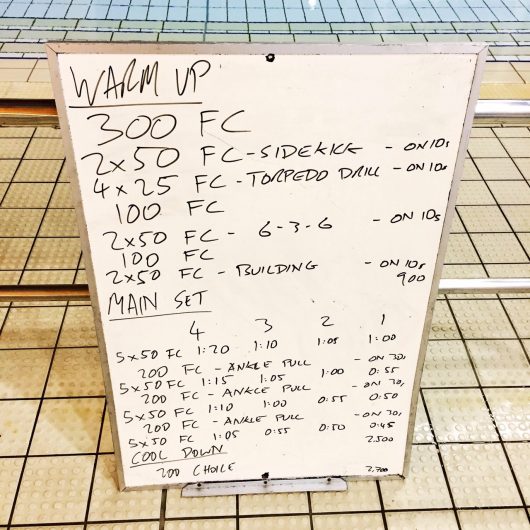 WARM UP
300 FC
2x50 FC - SIDEKICK - ON 10s
4x25 FC - TORPEDO DRILL - ON 10s
100 FC
2x50 FC - 6-3-6 - ON 10s
100 FC
2x50 FC - BUILDING - ON 10s
900
MAIN SET
4 3 2 1
5x50 FC 1:20 1:10 1:05 1:00
200 FC - ANKLE PULL - ON 30s
5x50 FC 1:15 1:05 1:00 0:55
200 FC - ANKLE PULL - ON 30s
5x50 FC 1:10 1:00 0:55 0:50
200 FC - ANKLE PULL - ON 30s
5x50 FC 1:05 0:55 0:50 0:45
2500
COOL DOWN
200 CHOICE 2,700